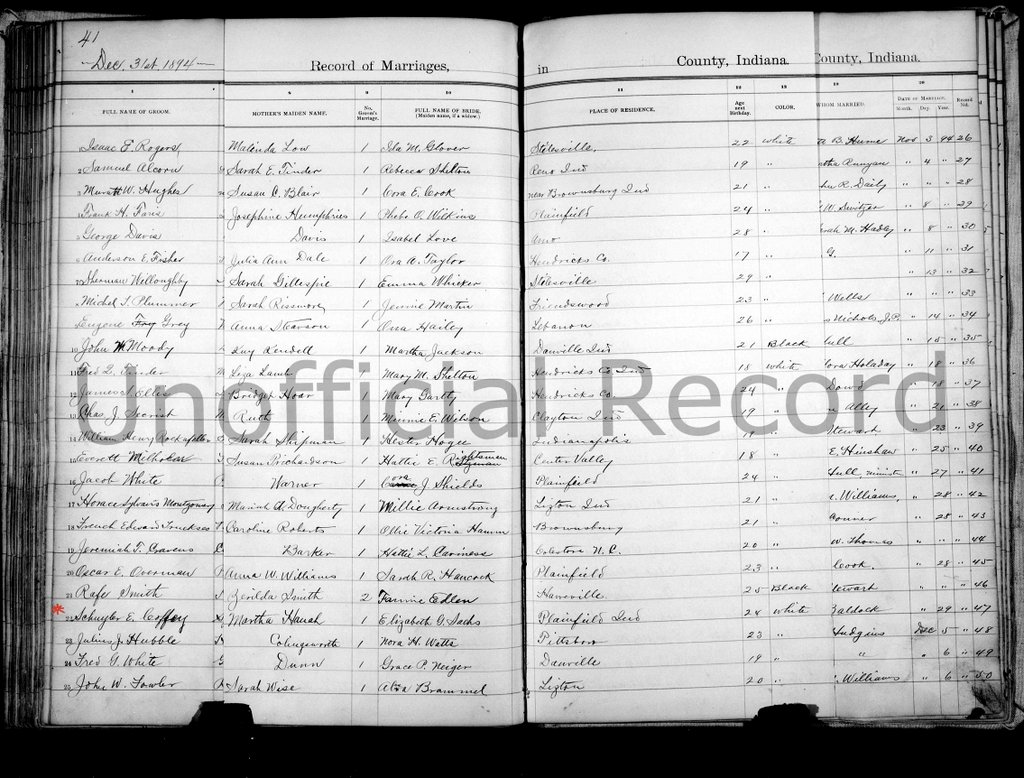 41
Dec. 31st, 1894
Record of Marriages,
in
County, Indiana.
County, Indiana.
FULL NAME OF GROOM.
MOTHER'S MAIDEN NAME.
No. Groom's Marriage.
FULL NAME OF BRIDE. (Maiden name, if a widow.)
PLACE OF RESIDENCE.
Age next Birthday.
COLOR.
WHOM MARRIED.
DATE OF MARRIAGE. Month. Day. Year.
Record No.
Isaac E. Rogers Malinda Low 1 Ida M. Glover Stilesville 22 white B. Hume Nov 3 94 26
2 Samuel Alcorn Sarah E. Tinder 1 Rebecca Shelton Reno Ind 19 " Runyan " 4 " 27
3 Muratt W. Hughes Susan C. Blair 1 Cora E. Cook near Brownsburg Ind 21 " R. Daily " " " 28
Frank H. Faris Josephine Humphries 1 Phebe O. Wilkins Plainfield 24 " W. Switzer " 8 " 29
George Davis Davis 1 Isabel Love Amo 28 " M. Hadley " 8 " 30
Anderson E. Fisher Julia Ann Dale 1 Ora A. Taylor Hendricks Co. 17 " G. " 11 " 31
Sherman Willoughby Sarah Gillespie 1 Emma Whicker Stilesville 29 " " 13 " 32
Michel S. Plummer Sarah Rissmore 1 Jennie Martin Friendswood 23 " Wells " " " 33
Eugene Grey Anna Stevson 1 Oma Hailey Lebanon 26 " Nichols J.P. " 14 " 34
10 John M Moody Lucy Kendell 1 Martha Jackson Danville Ind 21 Black " 15 " 35
11 Fred L. Liza Lamb 1 Mary M. Shelton Hendricks Co Ind 18 white Holaday " 18 " 36
12 James S. Ellis Bridget Hoar 1 Mary Hendricks Co. 24 " " 18 " 37
13 Chas. J. Secrist Ruth 1 Minnie E. Wilson Clayton Ind 19 " Alley " 21 " 38
14 William Henry Rockafeller Sarah Shipman 1 Hester Indianapolis 19 " Stewart " 23 " 39
15 Everett Susan Prichardson 1 Hallie E. Center Valley 18 " E. Hinshaw " 25 " 40
16 Jacob White Warner 1 Cora J. Shields Plainfield 24 " minister " 27 " 41
17 Horace Sylvanis Montgomery Mariah A. Dougherty 1 Millie Armstrong Lizton Ind 21 " Williams, " 28 " 42
18 French Edward Caroline Roberts 1 Ollie Victoria Hamm Brownsburg 21 " Conner " 28 " 43
19 Jeremiah T. Cravens Barker 1 Hattie L. N. C. 20 " W. Thomas " " " 44
20 Oscar E. Overman Anna W. Williams 1 Sarah R. Hancock Plainfield 23 " Cook " 28 " 45
21 Rafe Smith Zerilda Smith 2 Fannie Edlen 25 Black " " " 46
* 22 Schuyler E. Coffey Martha Hanah 1 Elizabeth G. Sachs Plainfield Ind 24 white " 29 " 47
23 Julius J. Hubble 1 Nora H. Watts Pittsboro 23 " Hudgins Dec 5 " 48
24 Fred G. White Dunn 1 Grace P. Neiger Danville 19 " " " 6 " 49
25 John W. Fowler Sarah Wise 1 Brammel Lizton 20 " Williams " 6 " 50
Unofficial Record